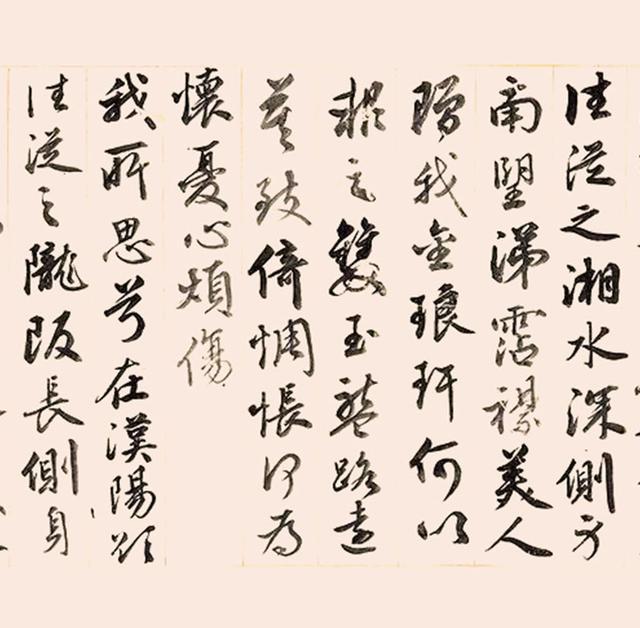 往從之湘水深側身
南朢涕霑襟美人
贈我金琅玕何以
報之雙玉盤路遠
莫致倚惆悵何為
懷憂心煩傷
我所思兮在漢陽欲
往從之隴阪長側身